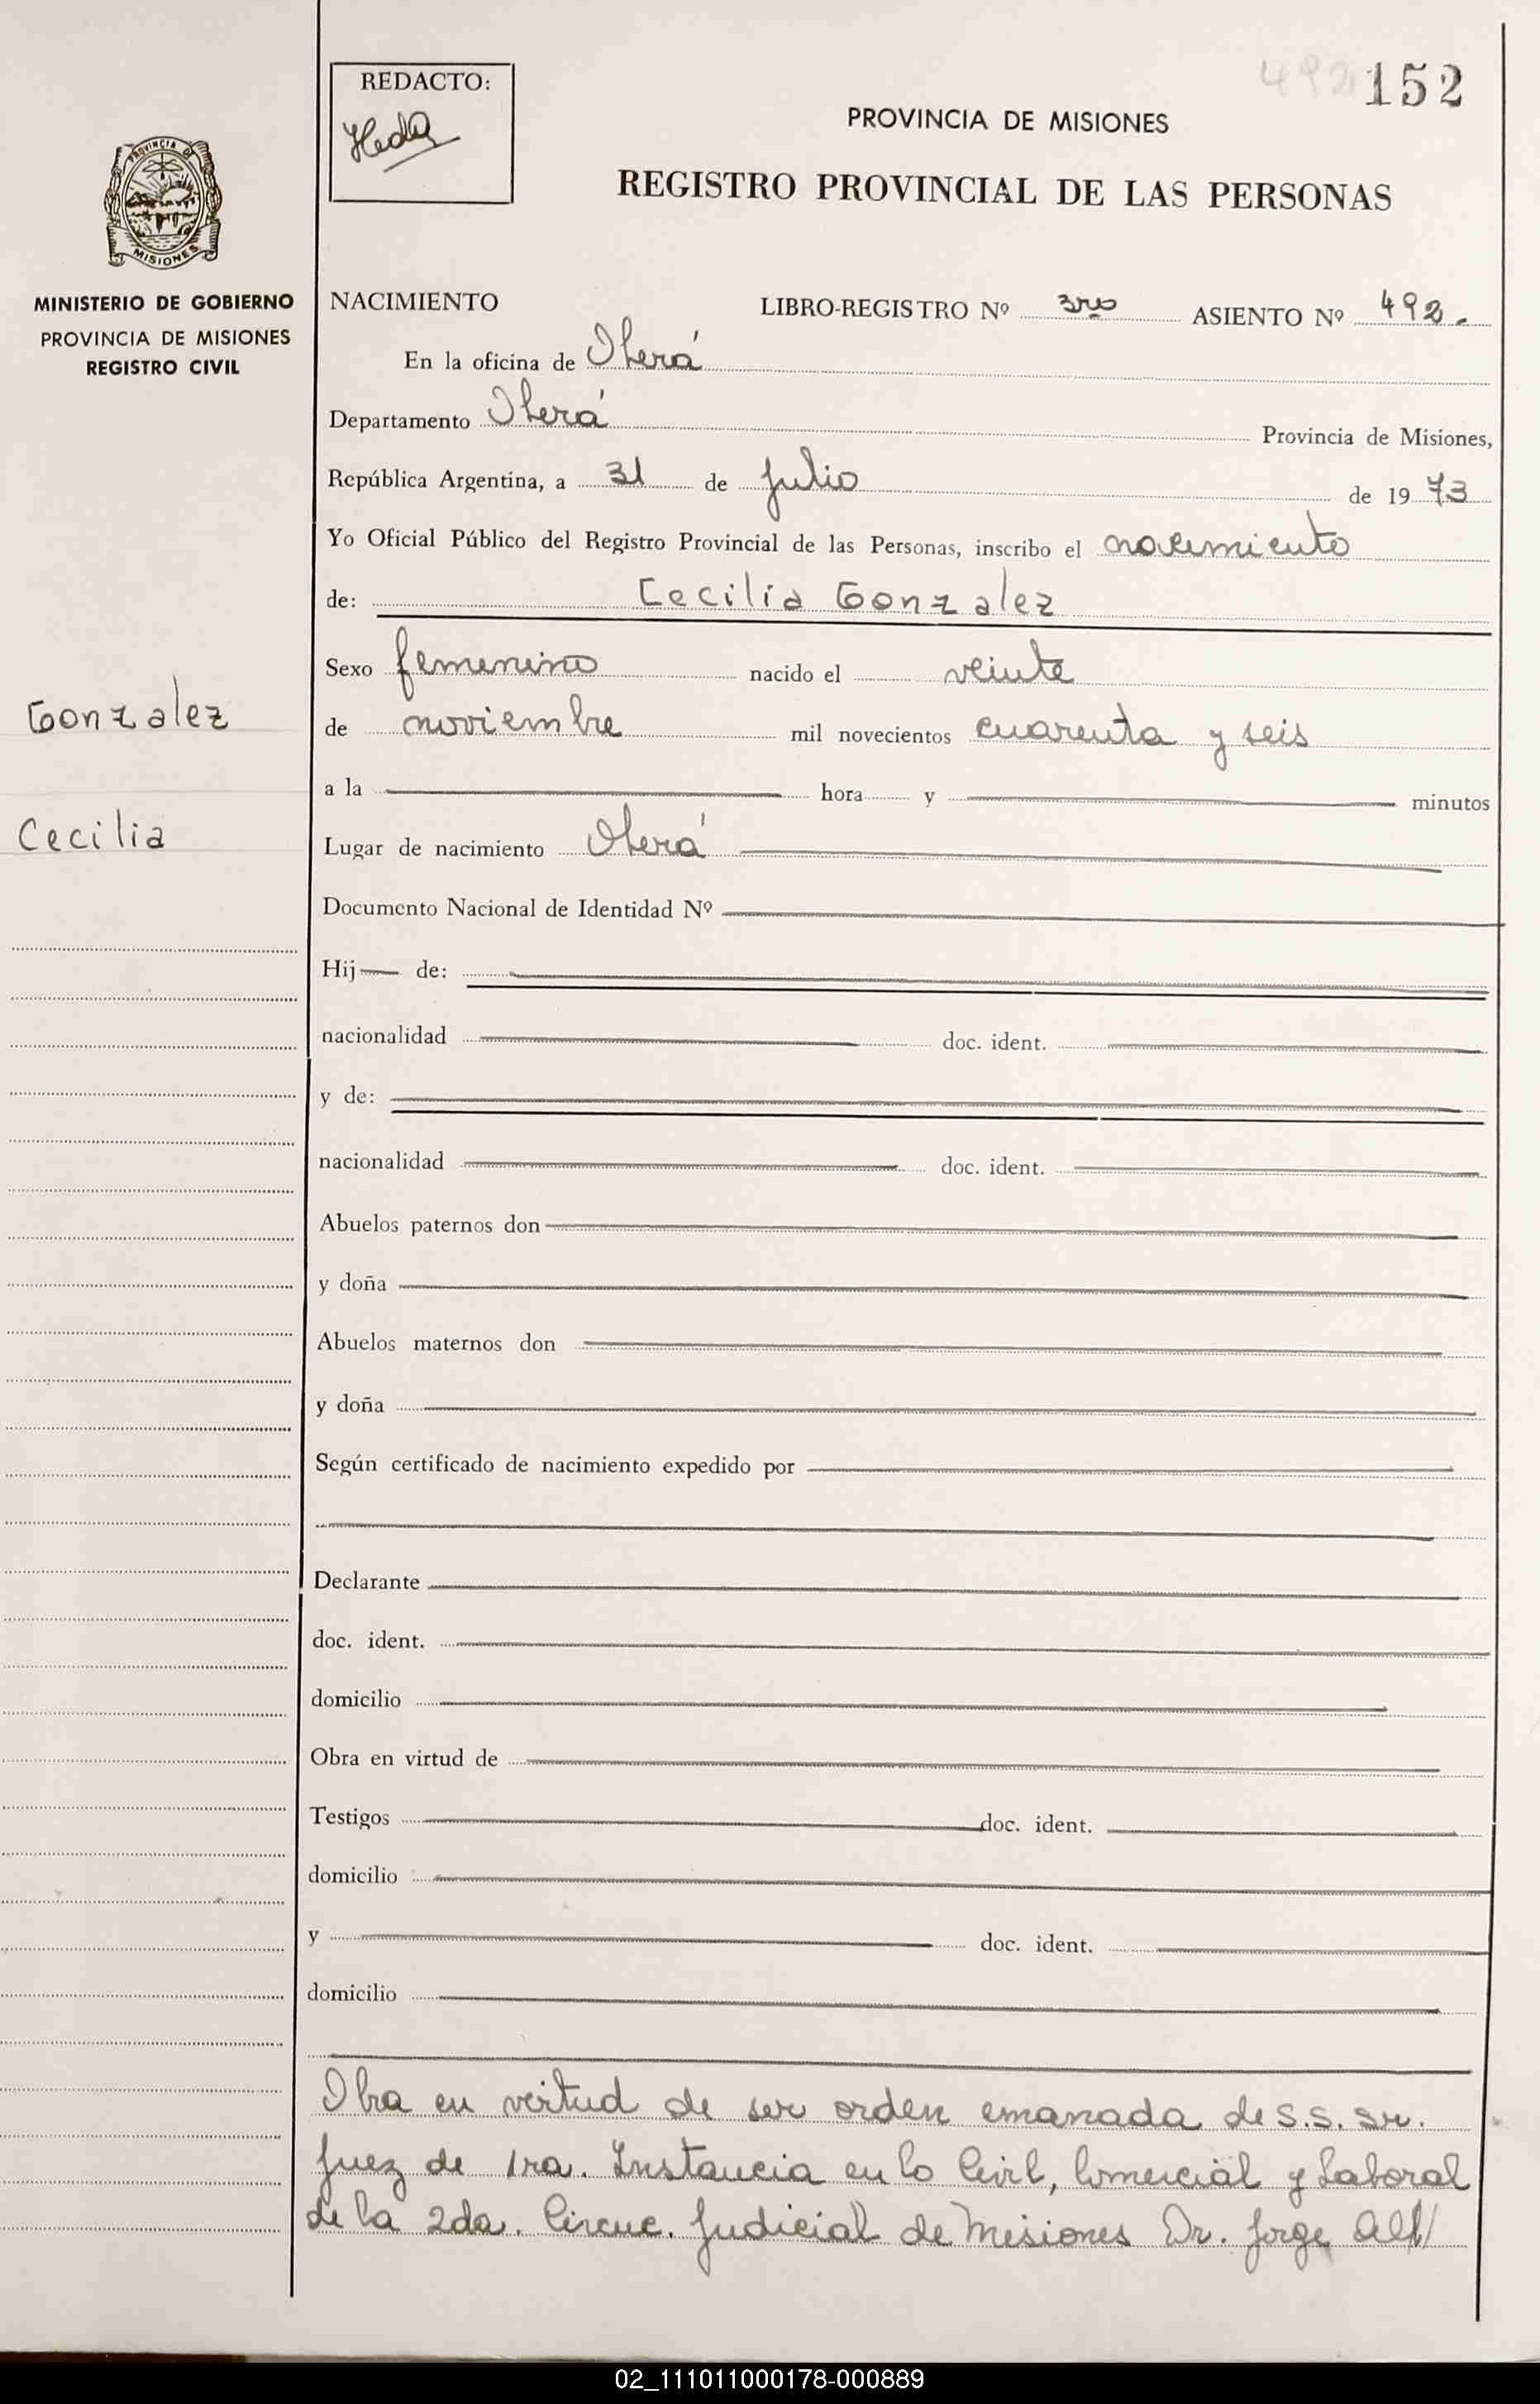 492 152
REDACTO:
PROVINCIA DE MISIONES
REGISTRO PROVINCIAL DE LAS PERSONAS
PROVINCIA DE
MISIONES
MINISTERIO DE GOBIERNO
PROVINCIA DE MISIONES
REGISTRO CIVIL
NACIMIENTO LIBRO-REGISTRO Nº 3ro ASIENTO Nº 492.
En la oficina de Oberá
Departamento Oberá Provincia de Misiones,
República Argentina, a 31 de julio de 1973
Yo Oficial Público del Registro Provincial de las Personas, inscribo el nacimiento
de: Cecilia Gonzalez
Sexo femenino nacido el veinte
Gonzalez
de noviembre mil novecientos cuarenta y seis
a la hora y minutos
Cecilia
Lugar de nacimiento Oberá
Documento Nacional de Identidad Nº
Hij de:
nacionalidad doc. ident.
y de:
nacionalidad doc. ident.
Abuelos paternos don
y doña
Abuelos maternos don
y doña
Según certificado de nacimiento expedido por
Declarante
doc. ident.
domicilio
Obra en virtud de
Testigos doc. ident.
domicilio
y doc. ident.
domicilio
Obra en virtud de ser orden emanada de S.S. Sr.
Juez de 1ra. Instancia en lo Civil, Comercial y Laboral
de la 2da. Circuc. Judicial de Misiones Dr. Jorge Alf/
02_111011000178-000889